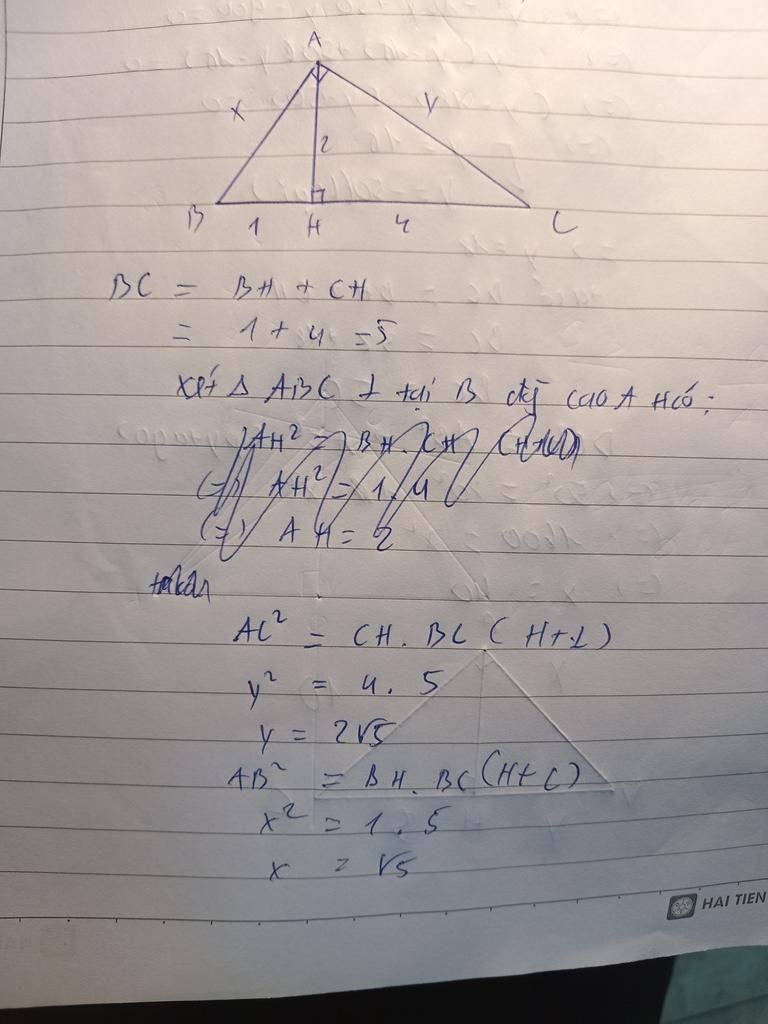 A
x
y
2
B 1 H 4 C
BC = BH + CH
= 1 + 4 = 5
xét Δ ABC ⊥ tại B đg cao AH có:
AH² = BH. CH
(=) AH² = 1.4
(=) AH = 2
AC² = CH. BC (H+L)
y² = 4. 5
y = 2√5
AB² = BH. BC (H+C)
x² = 1. 5
x = √5
HAI TIEN